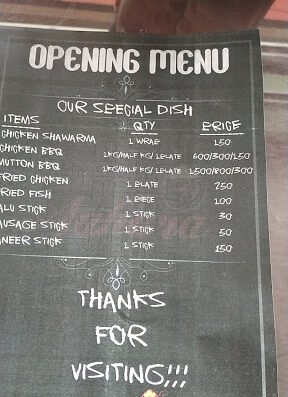 OPENING MENU
OUR SPECIAL DISH
ITEMS QTY PRICE
CHICKEN SHAWARMA 1 WRAP 150
CHICKEN BBQ 1KG/HALF KG/1 PLATE 600/300/150
MUTTON BBQ 1KG/HALF KG/1 PLATE 1500/800/300
FRIED CHICKEN 1 PLATE 250
FRIED FISH 1 PIECE 100
ALU STICK 1 STICK 30
AUSAGE STICK 1 STICK 50
ANEER STICK 1 STICK 150
THANKS
FOR
VISITING!!!